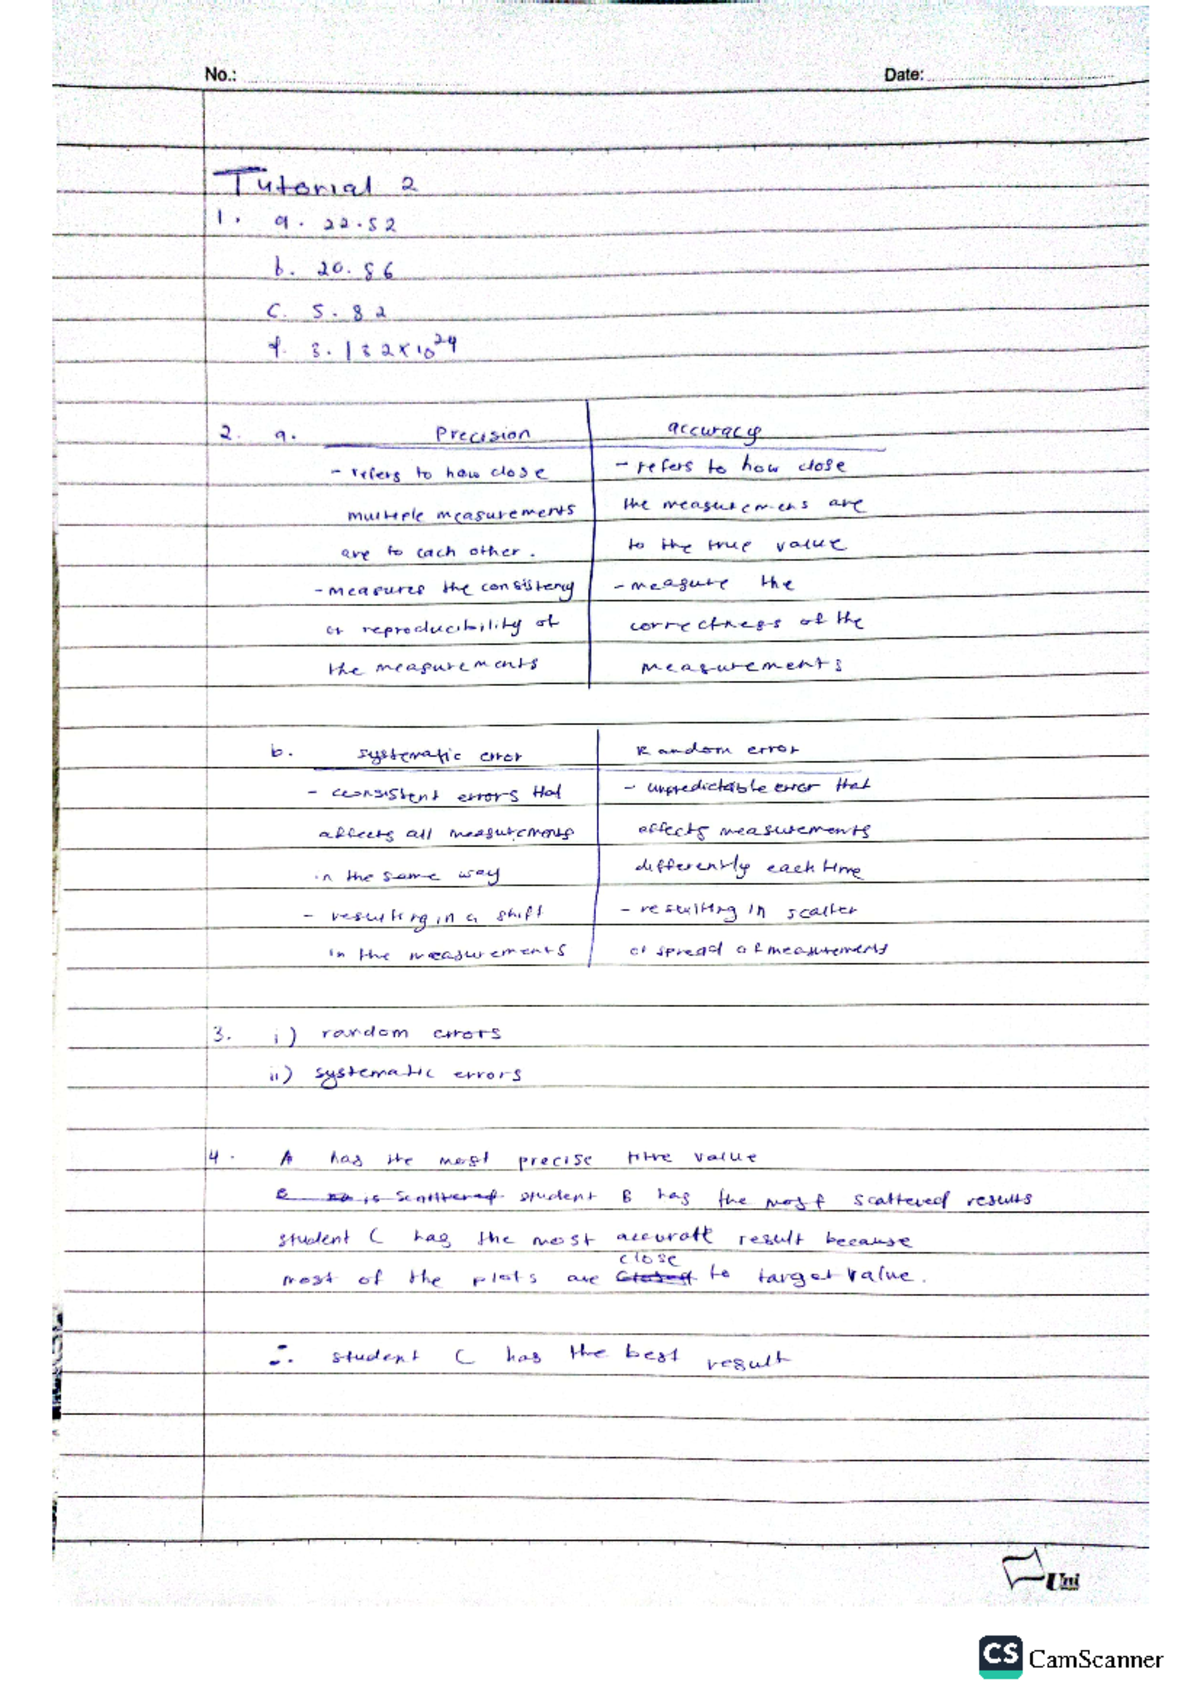 No.: Date:
Tutorial 2
1. a. 22.52
b. 20.86
c. 5.82
f. 3.132×10²⁴
2. a. Precision accuracy
- refers to how close - refers to how close
multiple measurements the measurements are
are to each other. to the true value
- measures the consistency - measure the
or reproducibility of correctness of the
the measurements measurements
b. systematic error Random error
- consistent errors that - unpredictable error that
affects all measurements affects measurements
in the same way differently each time
- resulting in a shift - resulting in scatter
in the measurements or spread of measurements
3. i) random errors
ii) systematic errors
4. A has the most precise titre value
is scattered student B has the most scattered results
student C has the most accurate result because
close
most of the plots are to target value.
∴ student C has the best result
Uni
CS CamScanner